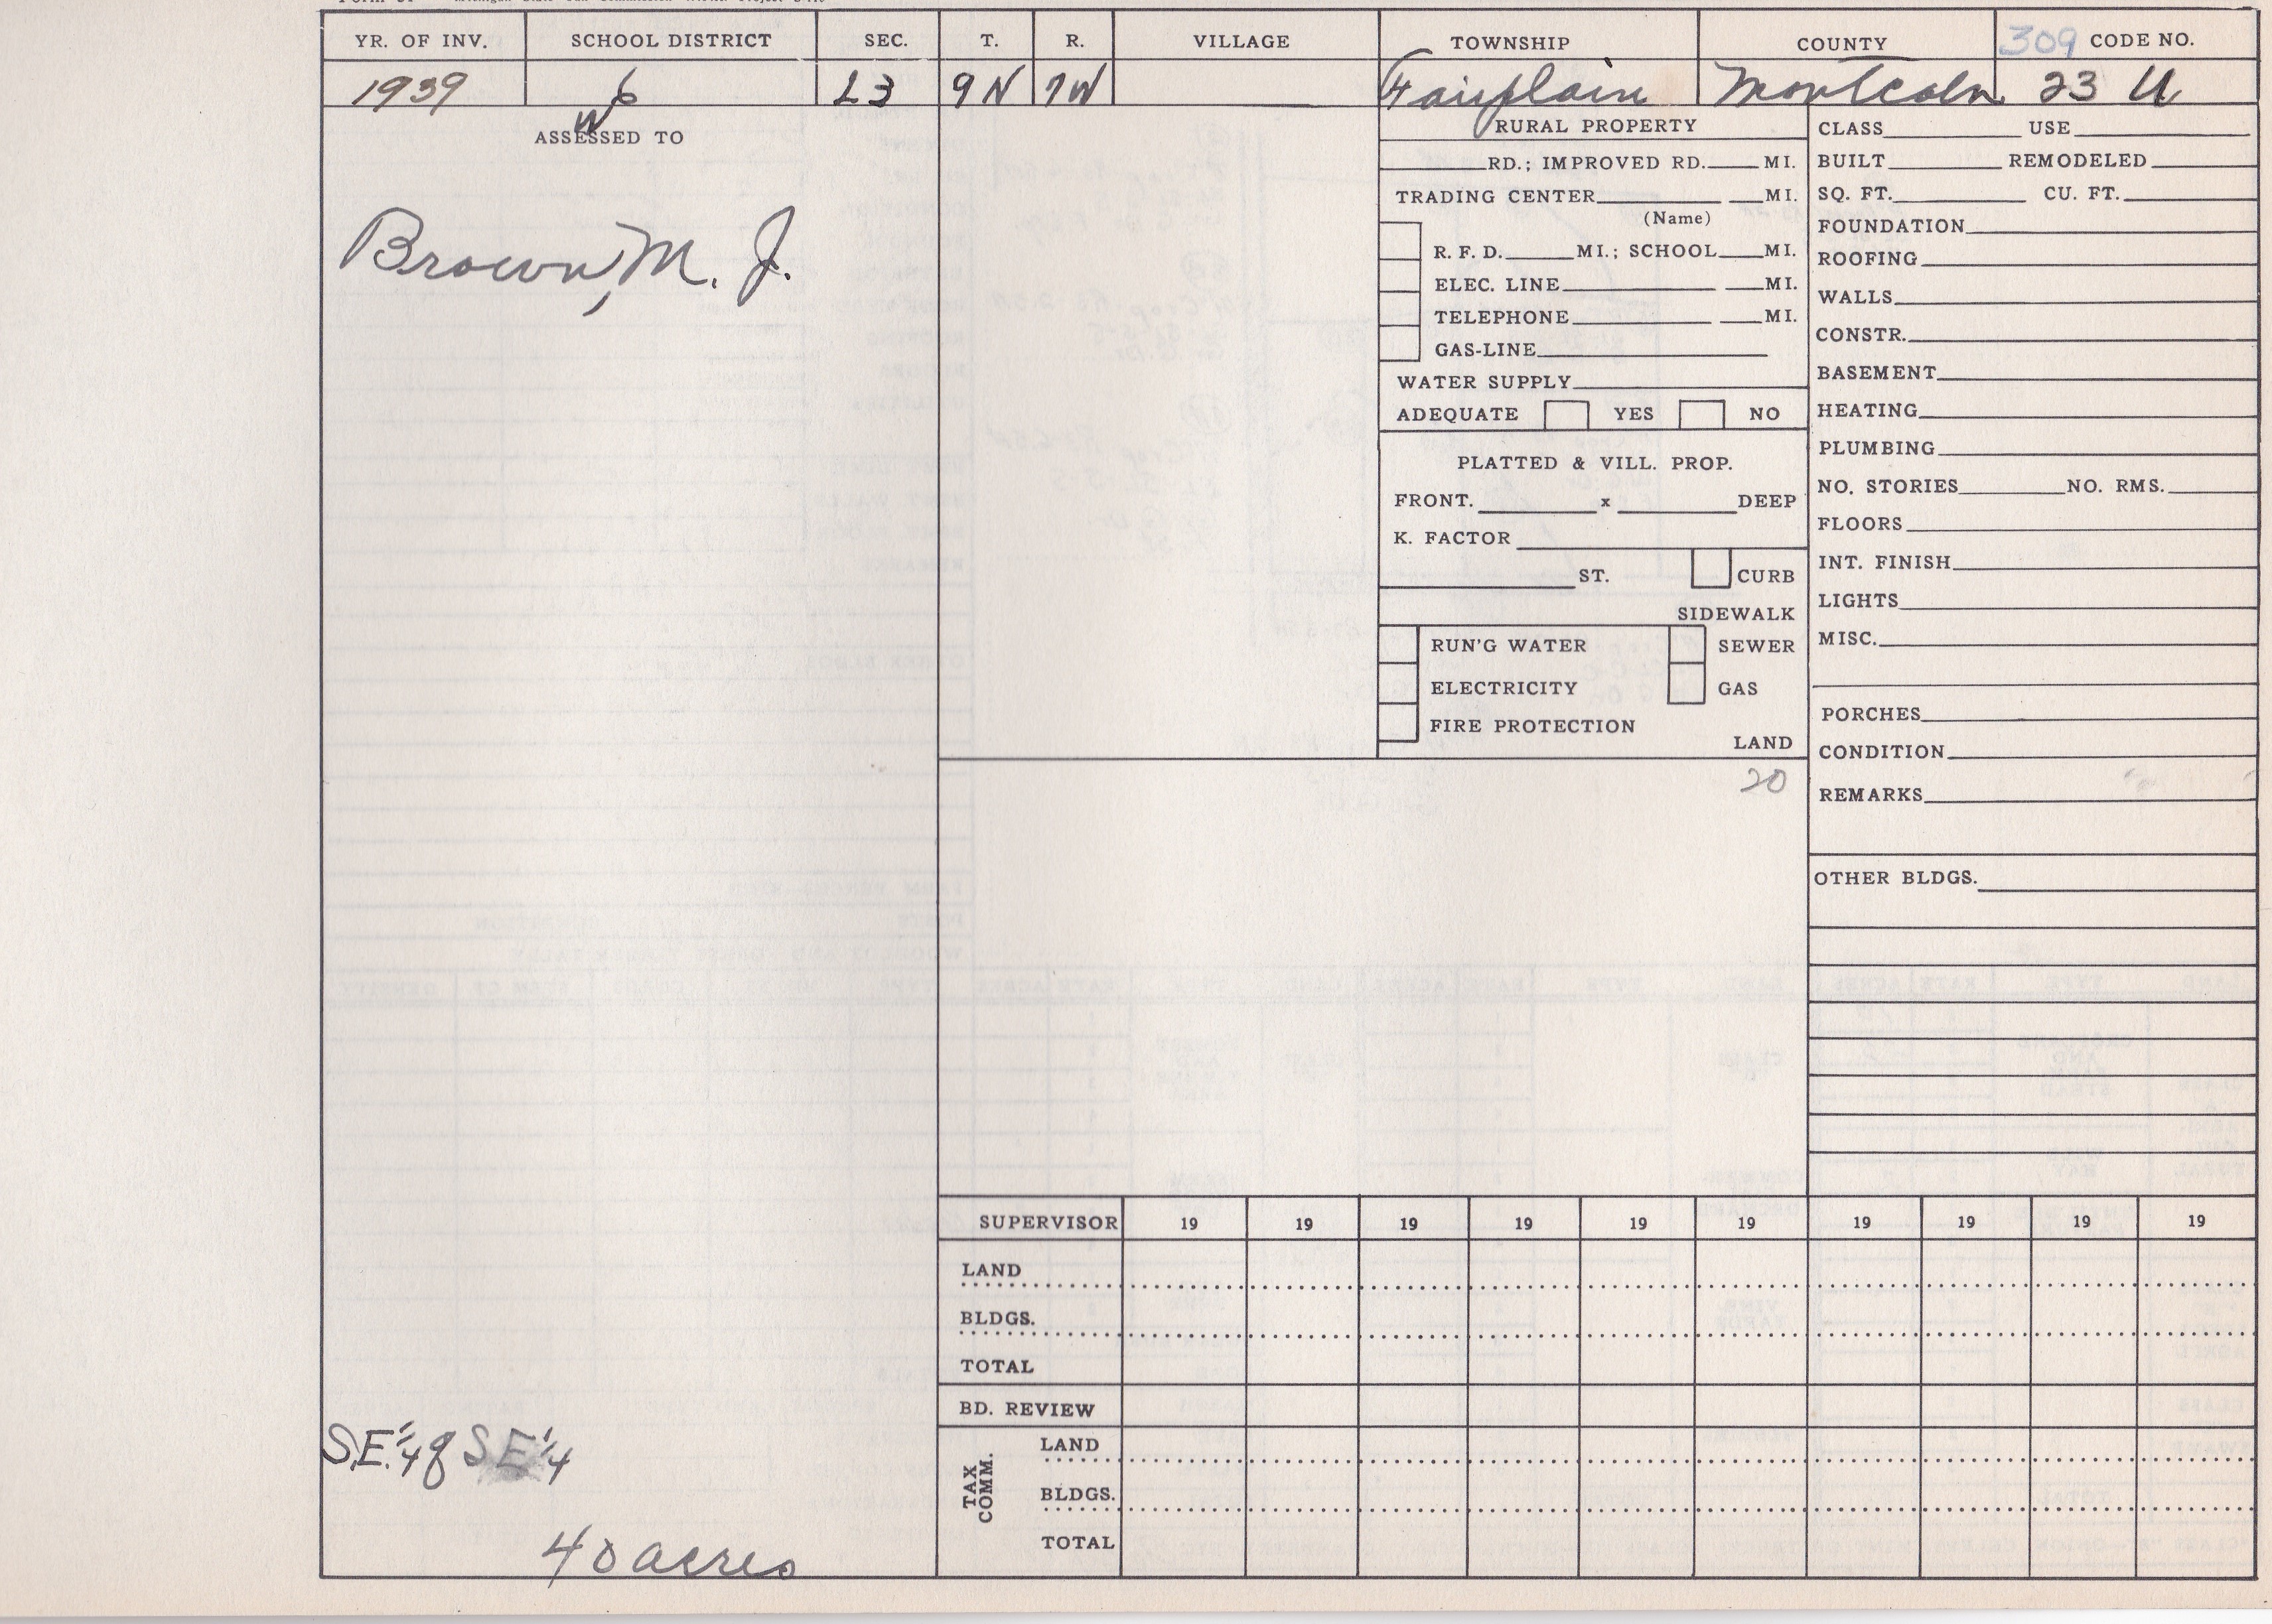 YR. OF INV. SCHOOL DISTRICT SEC. T. R. VILLAGE TOWNSHIP COUNTY 309 CODE NO.
1939 6 23 9N 7W Fairplain Montcalm 23 U
W
ASSESSED TO
Brown, M. J.
S.E. 1/4 of SE 1/4
40 acres
RURAL PROPERTY
RD.; IMPROVED RD. MI.
TRADING CENTER MI.
(Name)
R. F. D. MI.; SCHOOL MI.
ELEC. LINE MI.
TELEPHONE MI.
GAS-LINE
WATER SUPPLY
ADEQUATE YES NO
PLATTED & VILL. PROP.
FRONT. x DEEP
K. FACTOR
ST. CURB
SIDEWALK
RUN'G WATER SEWER
ELECTRICITY GAS
FIRE PROTECTION
LAND
20
CLASS USE
BUILT REMODELED
SQ. FT. CU. FT.
FOUNDATION
ROOFING
WALLS
CONSTR.
BASEMENT
HEATING
PLUMBING
NO. STORIES NO. RMS.
FLOORS
INT. FINISH
LIGHTS
MISC.
PORCHES
CONDITION
REMARKS
OTHER BLDGS.
SUPERVISOR 19 19 19 19 19 19 19 19 19 19
LAND
BLDGS.
TOTAL
BD. REVIEW
TAX COMM.
LAND
BLDGS.
TOTAL